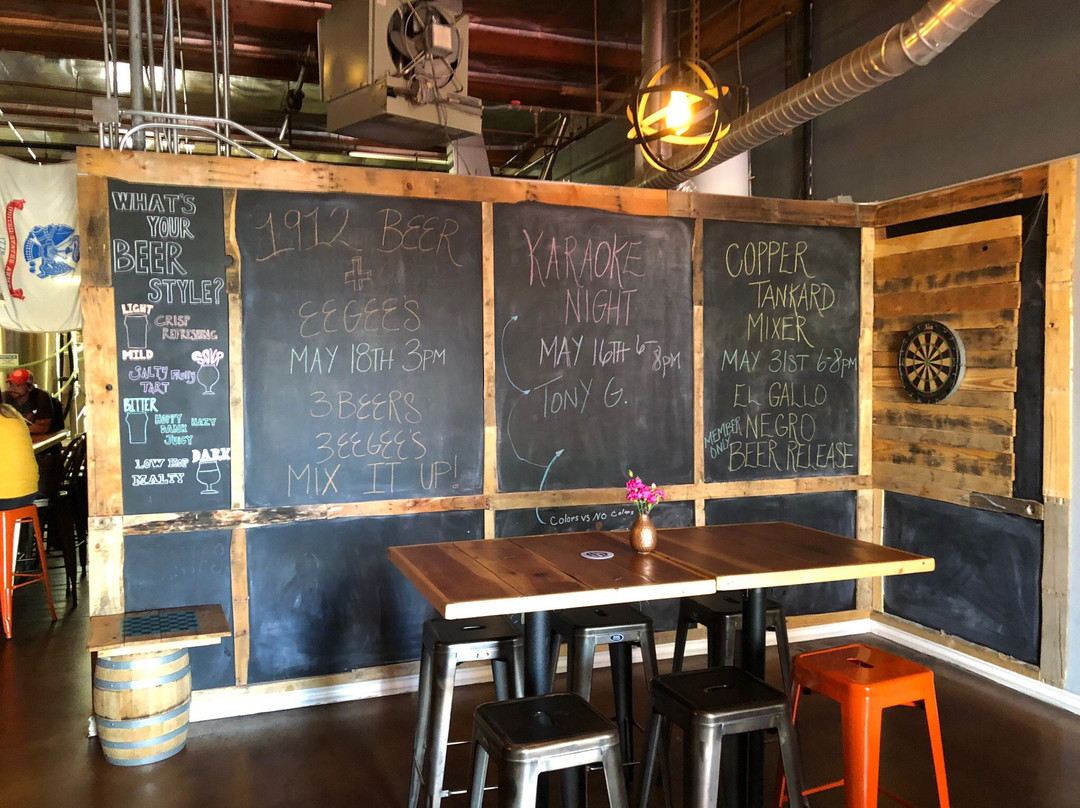 WHAT'S
YOUR
BEER
STYLE?
LIGHT
CRISP
REFRESHING
MILD
SOUR
SALTY FRUITY
TART
BITTER
HOPPY HAZY
DANK
JUICY
DARK
LOW HOP
MALTY
1912 BEER
+
EEGEE'S
MAY 18TH 3PM
3 BEERS
3 EEGEE'S
MIX IT UP!
KARAOKE
NIGHT
MAY 16TH 6-
8PM
TONY G.
COLORS VS NO COLORS
COPPER
TANKARD
MIXER
MAY 31ST 6-8PM
EL GALLO
NEGRO
BEER RELEASE
MEMBER
ONLY